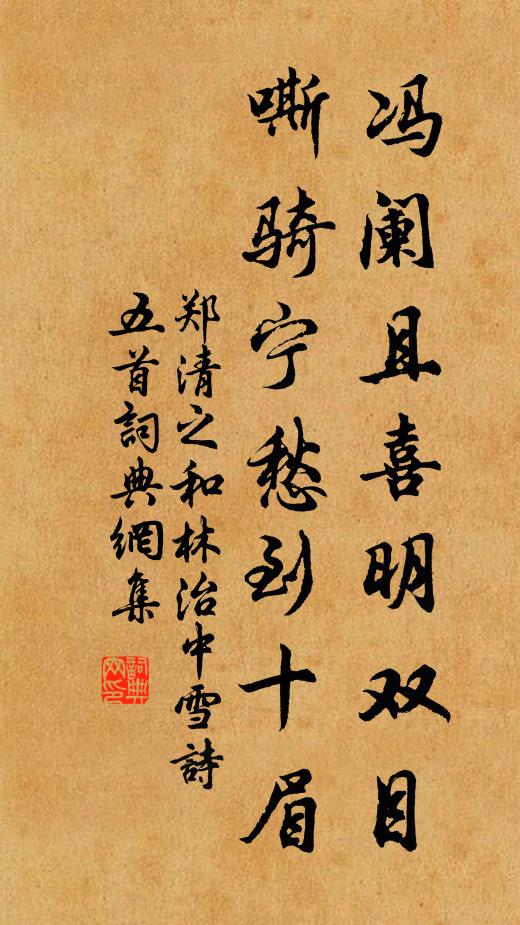 冯阑且喜明双目
嘶骑宁愁到十眉
郑清之和林治中雪詩
五首詞典網集
詞典
网印